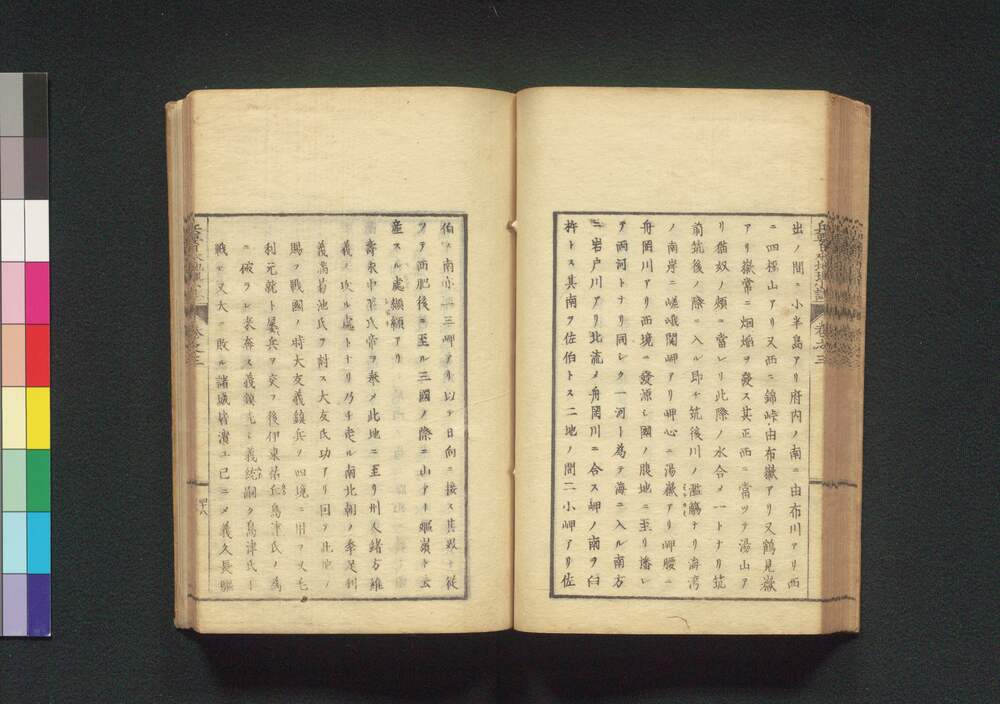 出ノ間ニ小半島アリ府内ノ南ニ由布川アリ西
ニ四極山アリ又西ニ錦峠由布嶽アリ又鶴見嶽
アリ嶽常ニ烟焔ヲ發ス其正西ニ當ツテ湯山ア
リ猫奴ノ頰ニ當レリ此際ノ水合メ一トナリ筑
前筑後ノ際ニ入ル即チ筑後川ノ濫觴ナリ海湾
ノ南岸ニ嵯峨関岬アリ岬心ニ湯嶽アリ岬腰ニ
舟岡川アリ西境ニ發源シ國ノ腹地ニ至リ潘レ
テ両河トナリ同シク一河ト為テ海ニ入ル南方
ニ岩戸川アリ北流メ舟岡川ニ合ス岬ノ南ヲ臼
杵トス其南ヲ佐伯トス二地ノ間二小岬アリ佐
伯ノ南亦二三岬アリ以テ日向ニ接ス其
ヲ西肥後ニ至ル三國ノ際ニ山アリ嫗嶽ト云
産スル處纐纈アリ
壽永中平氏帝ヲ奉メ此地ニ至リ州人緒方維
義ノ攻ル處トナリ乃チ走ル南北朝ノ季足利
義満菊池氏ヲ討ス大友氏功アリ回テ此地ヲ
賜フ戰國ノ時大友義鎮兵ヲ四境ニ用ヲ又毛
利元就ト屡兵ヲ交フ後伊東
ニ破ラレ
戰ヒ又大ニ敗ル諸城皆潰ユ已ニメ義久長驅
巻之三